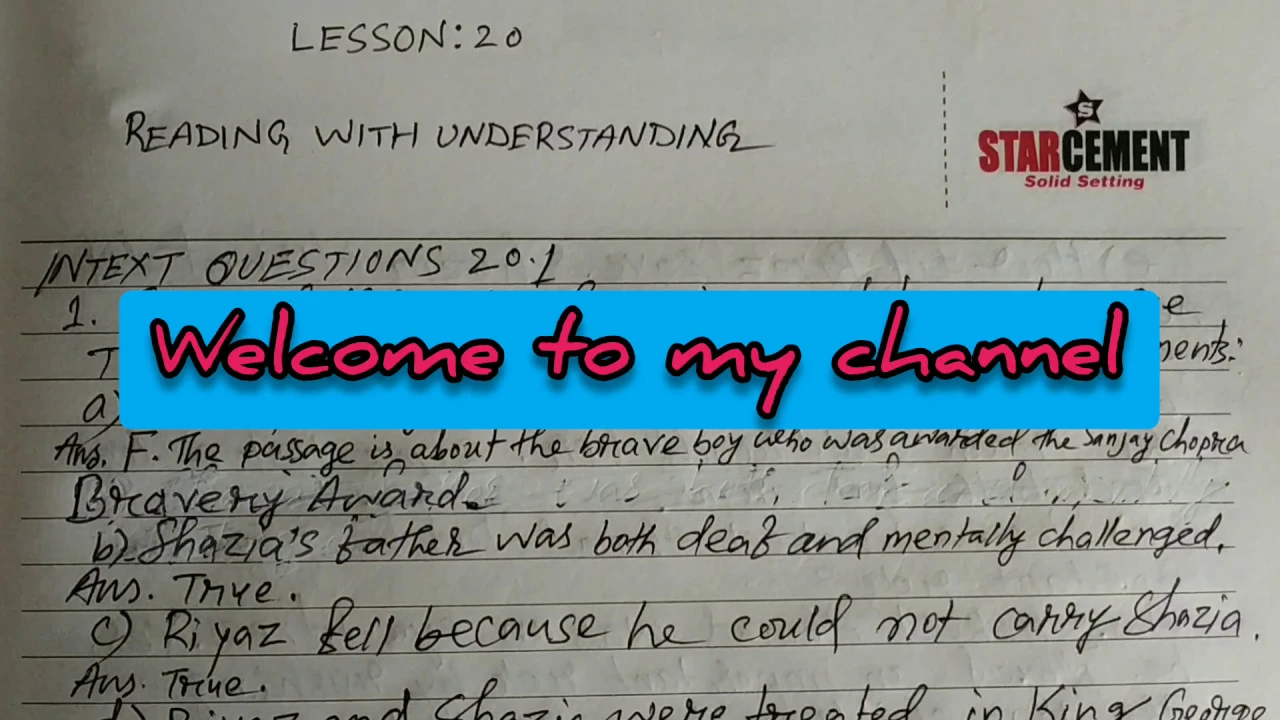 LESSON: 20
READING WITH UNDERSTANDING
STARCEMENT
Solid Setting
INTEXT QUESTIONS 20.1
1.
Welcome to my channel
a)
Ans. F. The passage is about the brave boy who was awarded the Sanjay Chopra
Bravery Award.
b) Shazia's father was both deaf and mentally challenged.
Ans. True.
c) Riyaz fell because he could not carry Shazia.
Ans. True.
d) Riyaz and Shazia were treated in King George